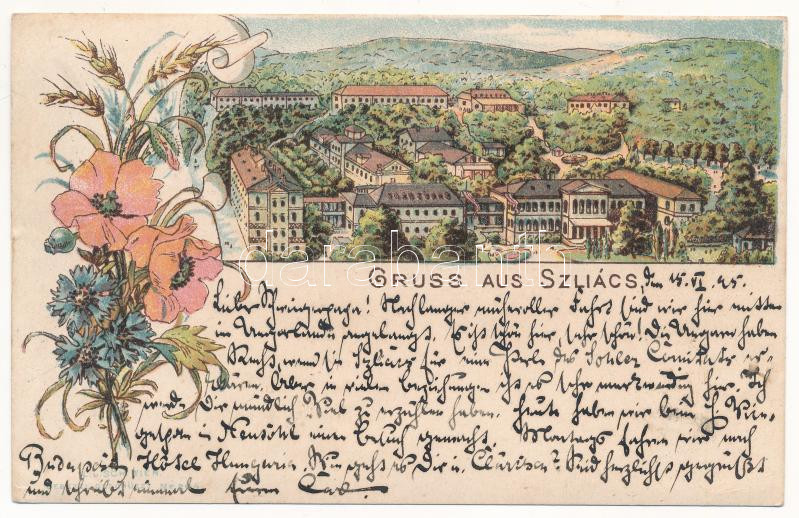 GRUSS AUS SZLIÁCS, den 15. VI 95.
Lieber Schwiegerpapa! Nach langer mühevoller Fahrt sind wir hier mitten
in Ungarland angelangt. Es ist schön hier, sehr schön! Die Ungarn haben
Recht, wenn sie Szliacs für eine Perle des Sohler Comitats er-
klären. Aber in vielen Beziehungen ist es sehr merkwürdig hier. Ich
werde Dir mündlich Viel zu erzählen haben. Heute haben wir beim H.
in Neusohl einen Besuch gemacht. Montags fahren wir nach
Budapest Hôtel Hungaria. Wie geht es Dir u. Seid herzlichst gegrüßt
und schreibt einmal Eurem
darabanth